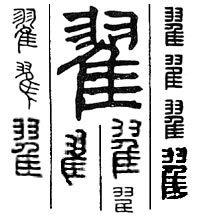 翟
翟
翟
翟
翟
翟
翟
翟
翟
翟
翟